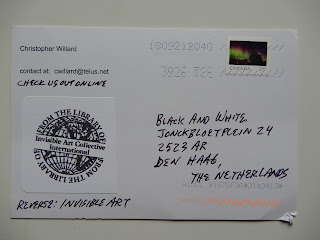 Christopher Willard
contact at: cwillard@telus.net
CHECK US OUT ONLINE
1809212040
3926 T22
CANADA
FROM THE LIBRARY OF
Invisible Art Collective
International
FROM THE LIBRARY OF
BLACK AND WHITE
JONCKBLOETPLEIN 24
2523 AR
DEN HAAG,
THE NETHERLANDS
REVERSE: INVISIBLE ART